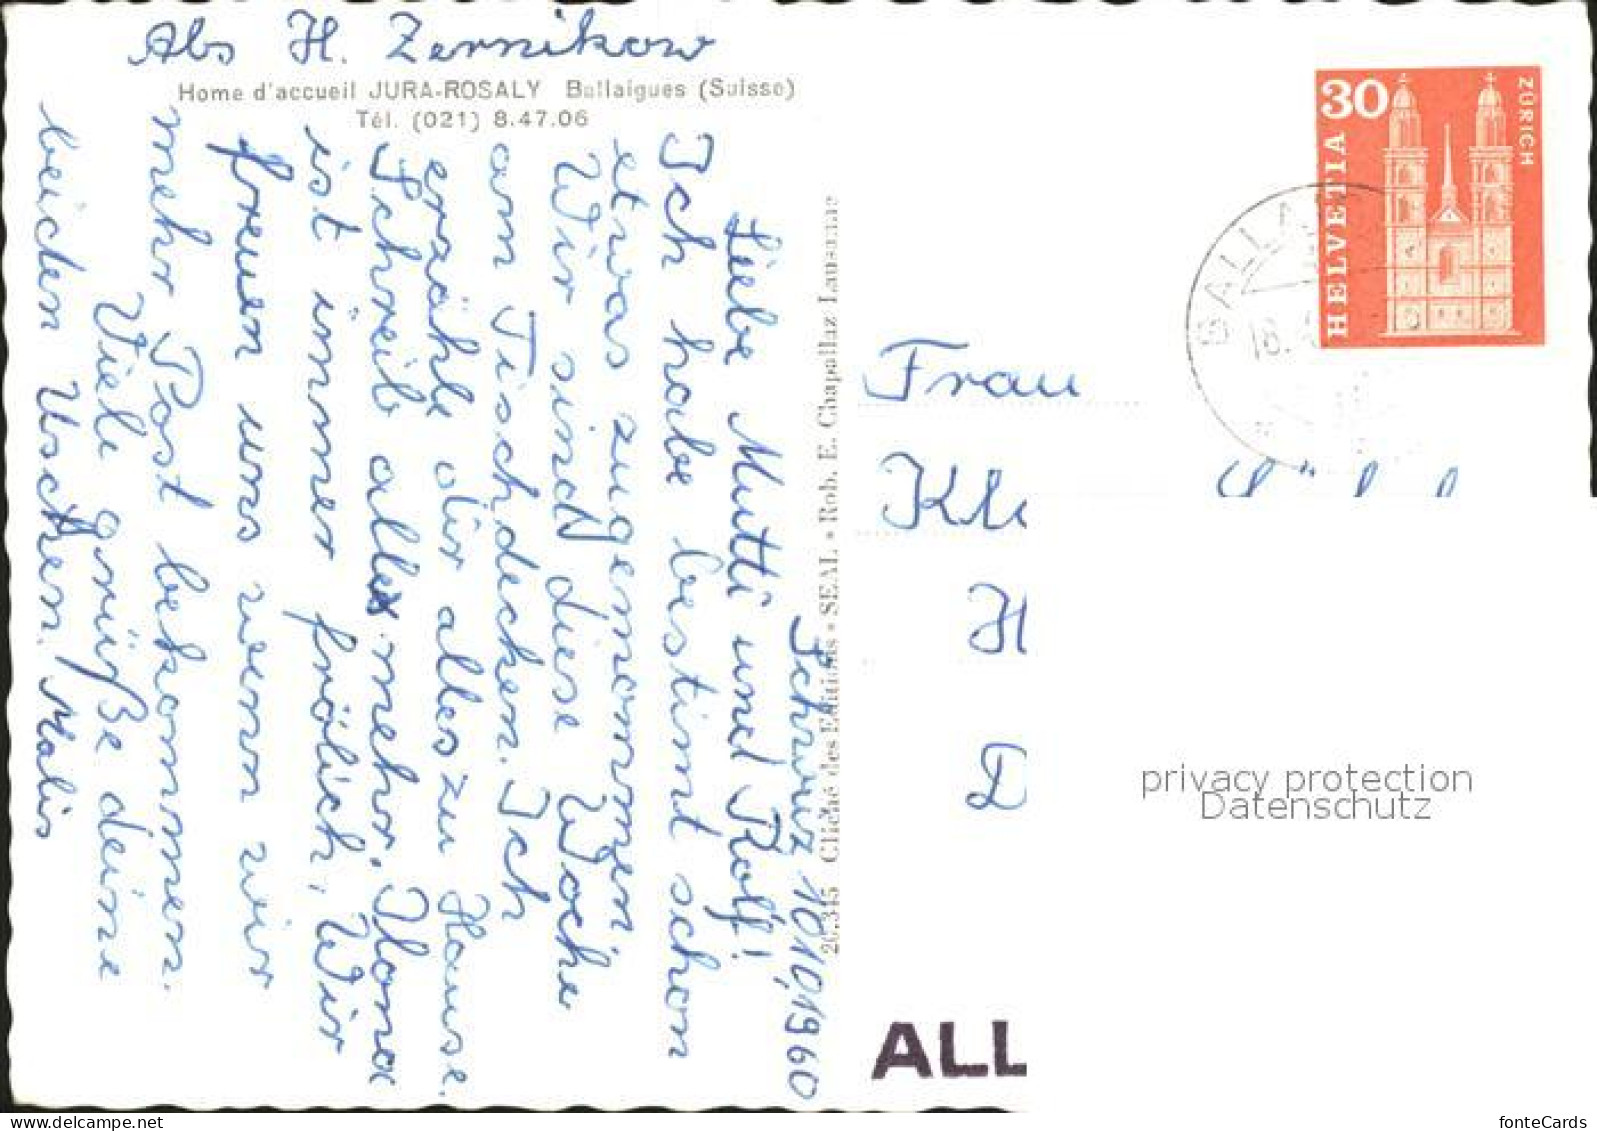 Abs H. Zernikow
Home d'accueil JURA-ROSALY Ballaigues (Suisse)
Tél. (021) 8.47.06
Schweiz 10/10/1960
Liebe Mutti und Rolf!
Ich habe bestimt schon
etwas zugenommen.
Wir sind diese Woche
am Tischdecken. Ich
erzähle dir alles zu Hause.
Schreib alles mehr. Ilona
ist immer frölich, Wir
freuen uns wenn wir
mehr Post bekommen.
Viele grüße deine
beiden Uschen. Malis
20.345 Cliché des Editions - SEAL • Rob. E. Chapallaz Lausanne
30
HELVETIA
ZÜRICH
BALLA
18.
Frau
Kle
H
D
ALL
privacy protection
Datenschutz
fonteCards